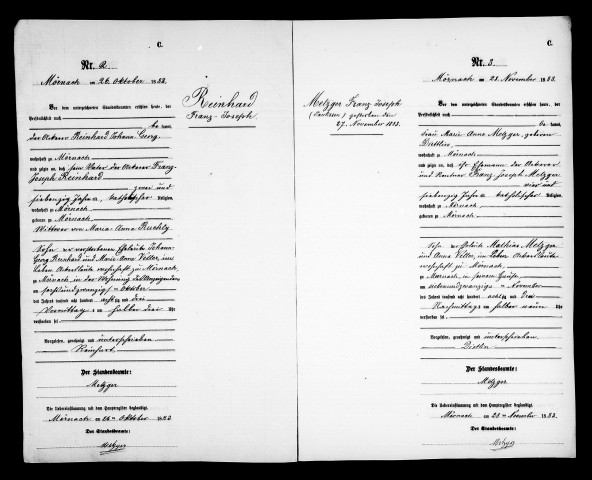 C.
Nr. 2.
Mörnach am 26. Oktober 1883.
Vor dem unterzeichneten Standesbeamten erschien heute, der
Persönlichkeit nach
be kannt
der Ackerer Reinhard Johann Georg
wohnhaft zu Mörnach
und zeigte an, daß sein Vater der Ackerer Franz
Joseph Reinhard
zwei und
siebenzig Jahre, katholischer Religion,
wohnhaft zu Mörnach
geboren zu Mörnach
Wittwer von Maria Anna Ruchly
Sohn der verstorbenen Eheleute Johann
Georg Reinhard und Marie Anne Veller, im
Leben Ackersleute wohnhaft zu Mörnach,
zu Mörnach in der Wohnung des Anzeigenden
am sechsundzwanzigten Oktober
des Jahres tausend acht hundert achtzig und drei
Vormittag um halber drei Uhr
verstorben sei
Vorgelesen, genehmigt und unterschrieben
Reinhart
Der Standesbeamte:
Metzger
Die Uebereinstimmung mit dem Hauptregister beglaubigt.
Mörnach am 26ten Oktober 1883
Der Standesbeamte:
Metzger
Reinhard
Franz-Joseph.
C.
Nr. 3.
Mörnach am 28. November 1883.
Vor dem unterzeichneten Standesbeamten erschien heute, der
Persönlichkeit nach
be kannt
Frau Marie Anne Metzger, geborene
Dietlin
wohnhaft zu Mörnach
und zeigte an, daß ihr Ehemann der Ackerer
und Rentner Franz Joseph Metzger
vier und
siebenzig Jahre katholischer Religion,
wohnhaft zu Mörnach
geboren zu Mörnach
Sohn der Eheleute Mathias Metzger
und Anna Veller, im Leben Ackersleute
wohnhaft zu Mörnach,
zu Mörnach in seinem Hause
am siebenundzwanzigten November
des Jahres tausend acht hundert achtzig und drei
Nachmittags um halber neun Uhr
verstorben sei
Vorgelesen, genehmigt und unterschrieben
Dietlin
Der Standesbeamte:
Metzger
Die Uebereinstimmung mit dem Hauptregister beglaubigt.
Mörnach am 28ten November 1883.
Der Standesbeamte:
Metzger
Metzger Franz Joseph
gestorben den
27. November 1883.